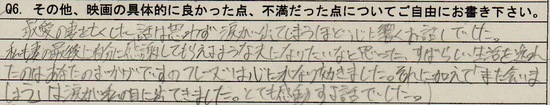 Q6. その他、映画の具体的に良かった点、不満だった点についてご自由にお書き下さい。
最愛の妻を亡くした話は思わず涙が出てしまうほど心に響くお話しでした。
私も妻の最後に自分に感謝してもらえるような夫になりたいなと思った。すばらしい生活を送れ
たのはあなたのおかげですのフレーズは心に水なり効きました。それに加えて「また会いま
しょう」は涙が私の目に出てきました。とても感動する話でした。)